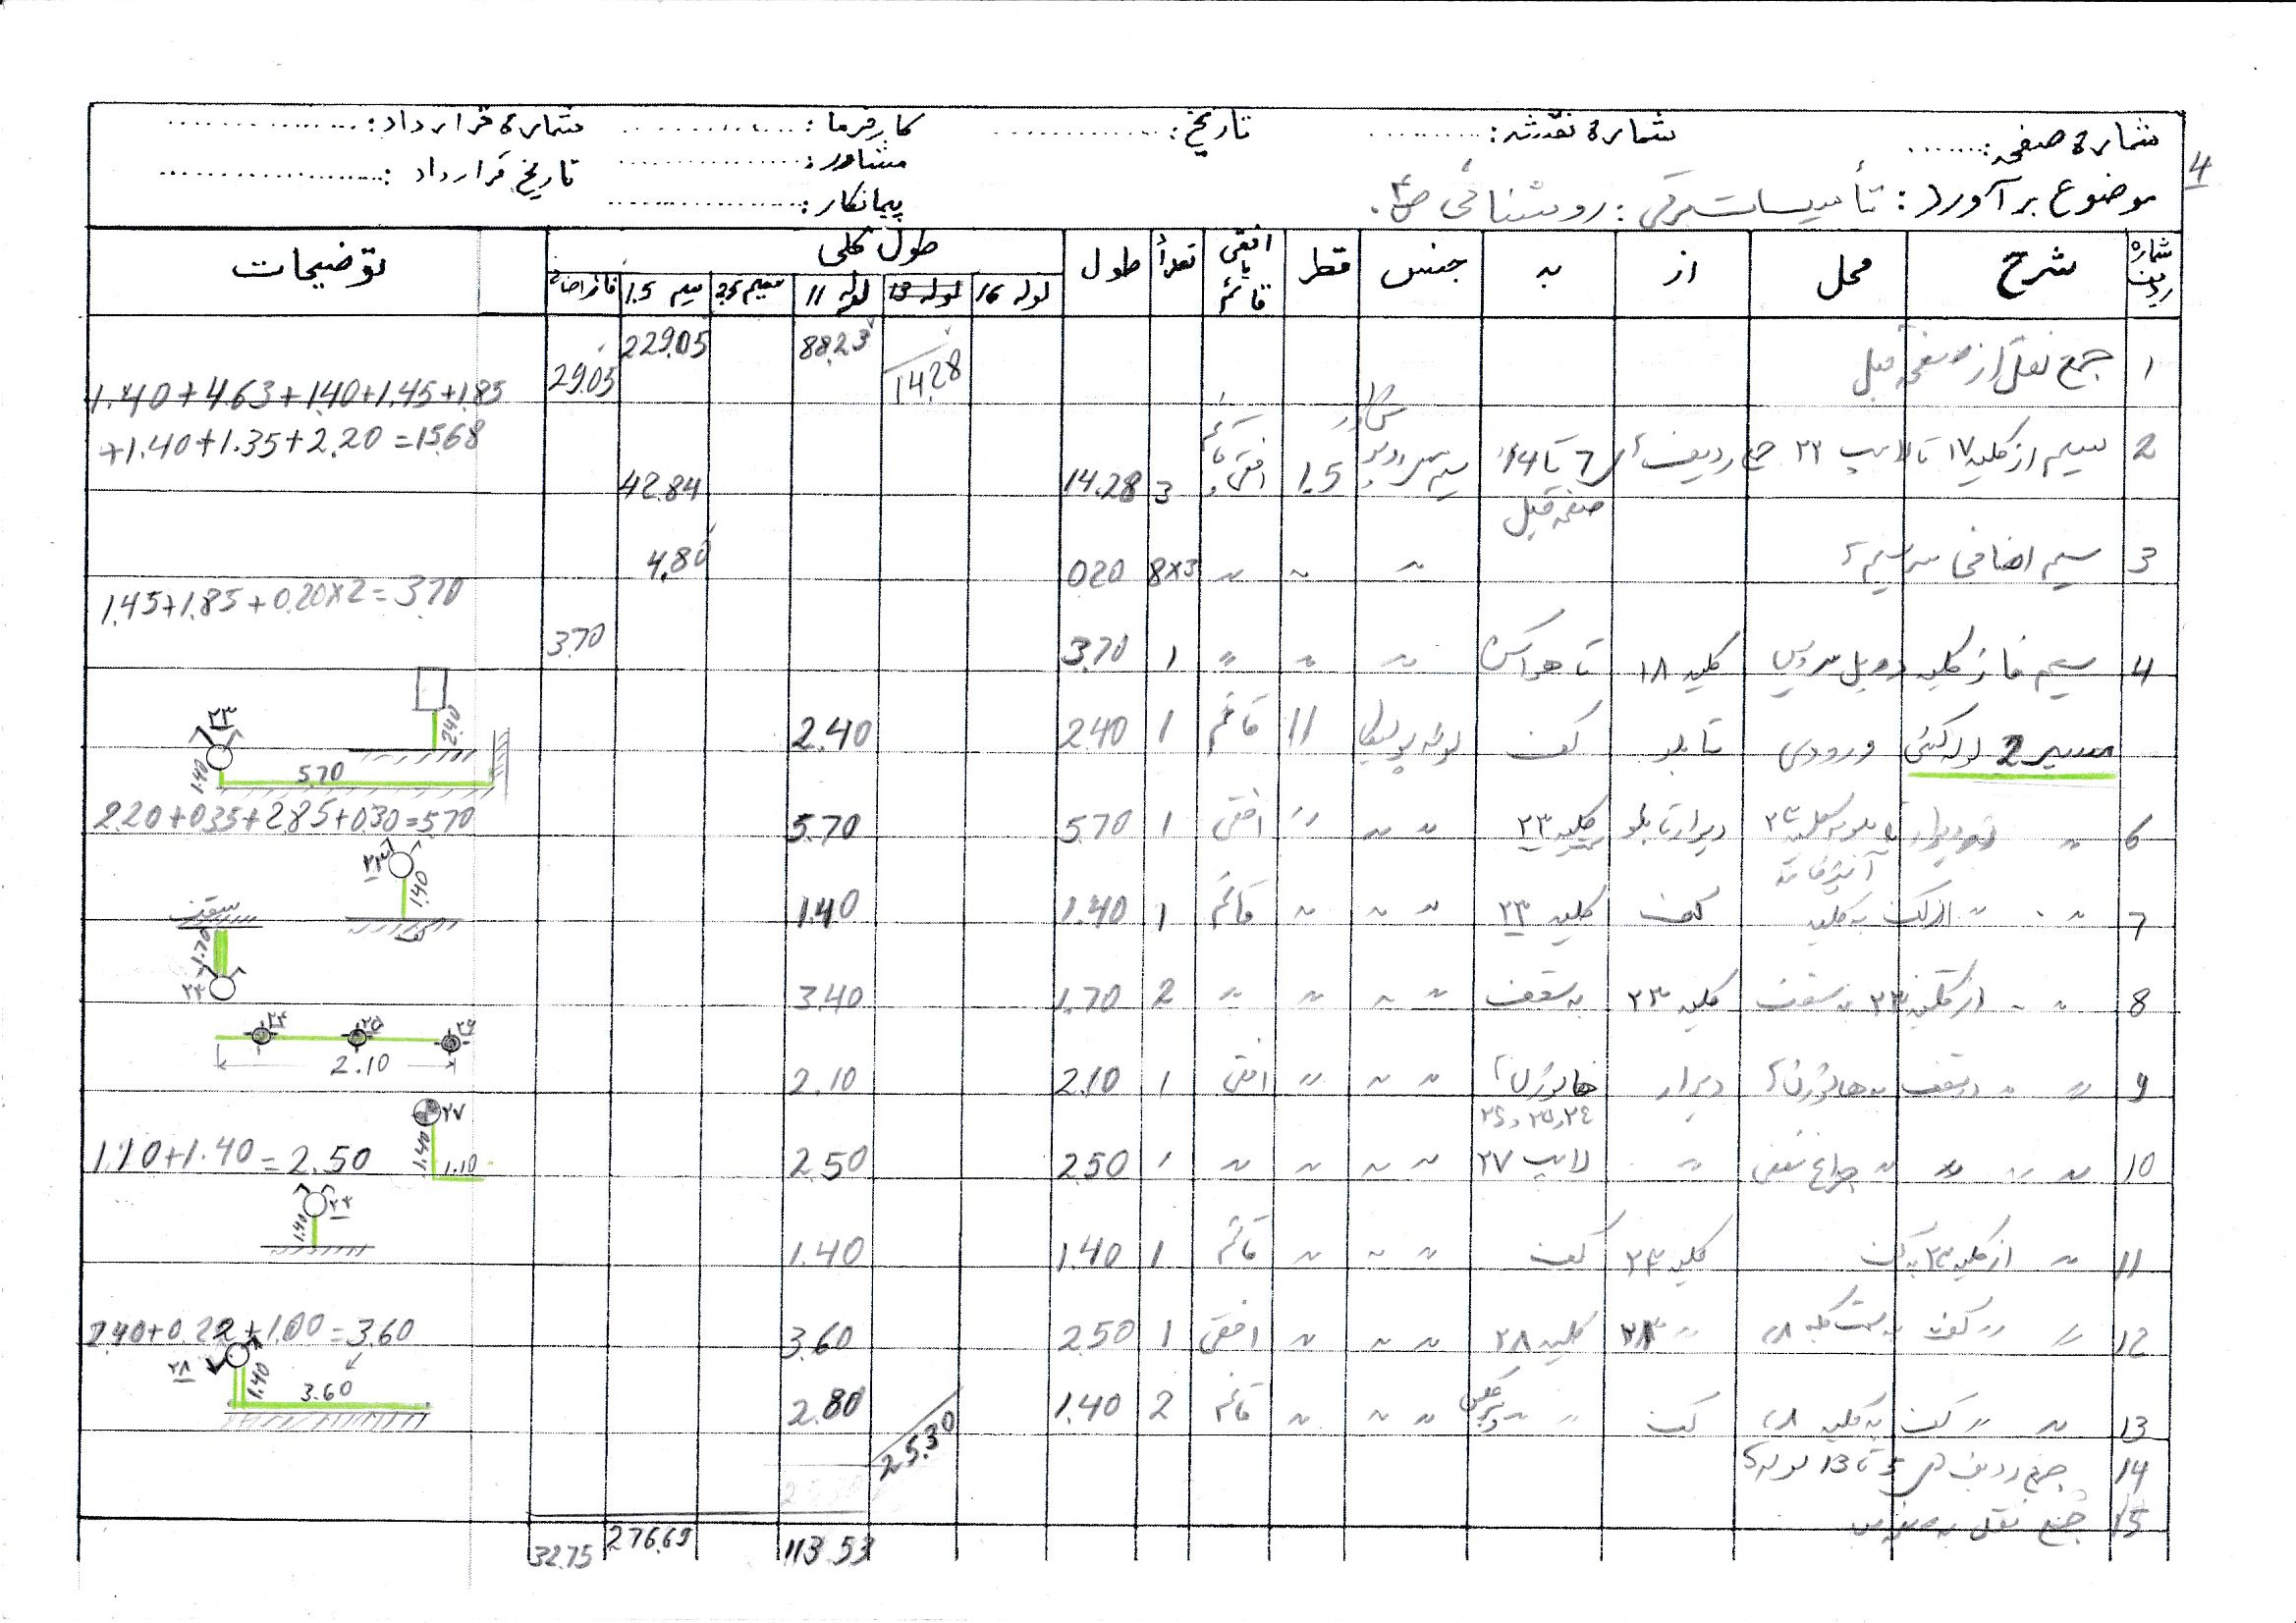 شماره صفحه: ....... شماره نقشه: ........... تاریخ: ............... کارفرما: ............... شماره قرارداد: ................
4
مشاور: ................ تاریخ قرارداد: ...................
موضوع برآورد: تأسیسات برقی: روشنائی ص ۴.
پیمانکار: .................
شماره ردیف شرح محل از به جنس قطر افقی یا قائم تعداد طول طول کلی توضیحات
لوله 16 لوله 13 لوله 11 سیم 2.5 سیم 1.5 فاز اضافی
1 جمع نقل از صفحه قبل 14.28 88.23 229.05 29.05
1.40+4.63+1.40+1.45+1.85
2 سیم از کلید ۱۷ تا لامپ ۲۲ جمع ردیف 7 تا 14 صفحه قبل 1.5 افقی و قائم 3 14.28 42.84
+1.40+1.35+2.20=15.68
3 سیم اضافی سر سیم 〃 〃 〃 8×3 0.20 4.80
4 سیم فاز کلید دوبل سرویس کلید ۱۸ تا هواکش 〃 〃 〃 1 3.70 3.70
1.45+1.85+0.20×2=3.70
مسیر 2 لوله کشی ورودی تابلو کف لوله پولیکا 11 قائم 1 2.40 2.40
۲۳ 1.40 5.70 2.40
6 〃 دیوار تابلو کلید ۲۳ 〃 〃 〃 افقی 1 5.70 5.70
آشپزخانه
2.20+0.35+2.85+0.30=5.70
7 〃 〃 از کف به کلید کف کلید ۲۳ 〃 〃 〃 قائم 1 1.40 1.40
۲۳ 1.40 کف
8 〃 〃 از کلید ۲۳ به سقف کلید ۲۳ به سقف 〃 〃 〃 〃 2 1.70 3.40
سقف 1.70 ۲۳
9 〃 〃 در سقف به هالوژن دیوار هالوژن ۲۴، ۲۵، ۲۶ 〃 〃 〃 افقی 1 2.10 2.10
۲۴ ۲۵ ۲۶ 2.10
10 〃 〃 〃 〃 چراغ سقفی 〃 لامپ ۲۷ 〃 〃 〃 〃 1 2.50 2.50
1.10+1.40=2.50 ۲۷ 1.40 1.10
11 〃 از کلید ۲۳ به کف کلید ۲۳ کف 〃 〃 〃 قائم 1 1.40 1.40
۲۳ 1.40
12 〃 〃 کف به سمت کلید ۲۸ 〃 کلید ۲۸ 〃 〃 〃 افقی 1 2.50 3.60
2.40+0.22+1.00=3.60
13 〃 〃 کف به کلید ۲۸ کف 〃 〃 〃 〃 〃 قائم 2 1.40 2.80
۲۸ 1.40 3.60
14 جمع ردیف های 5 تا 13 لوله 25.30
15 جمع نقل به صفحه بعد 113.53 276.69 32.75